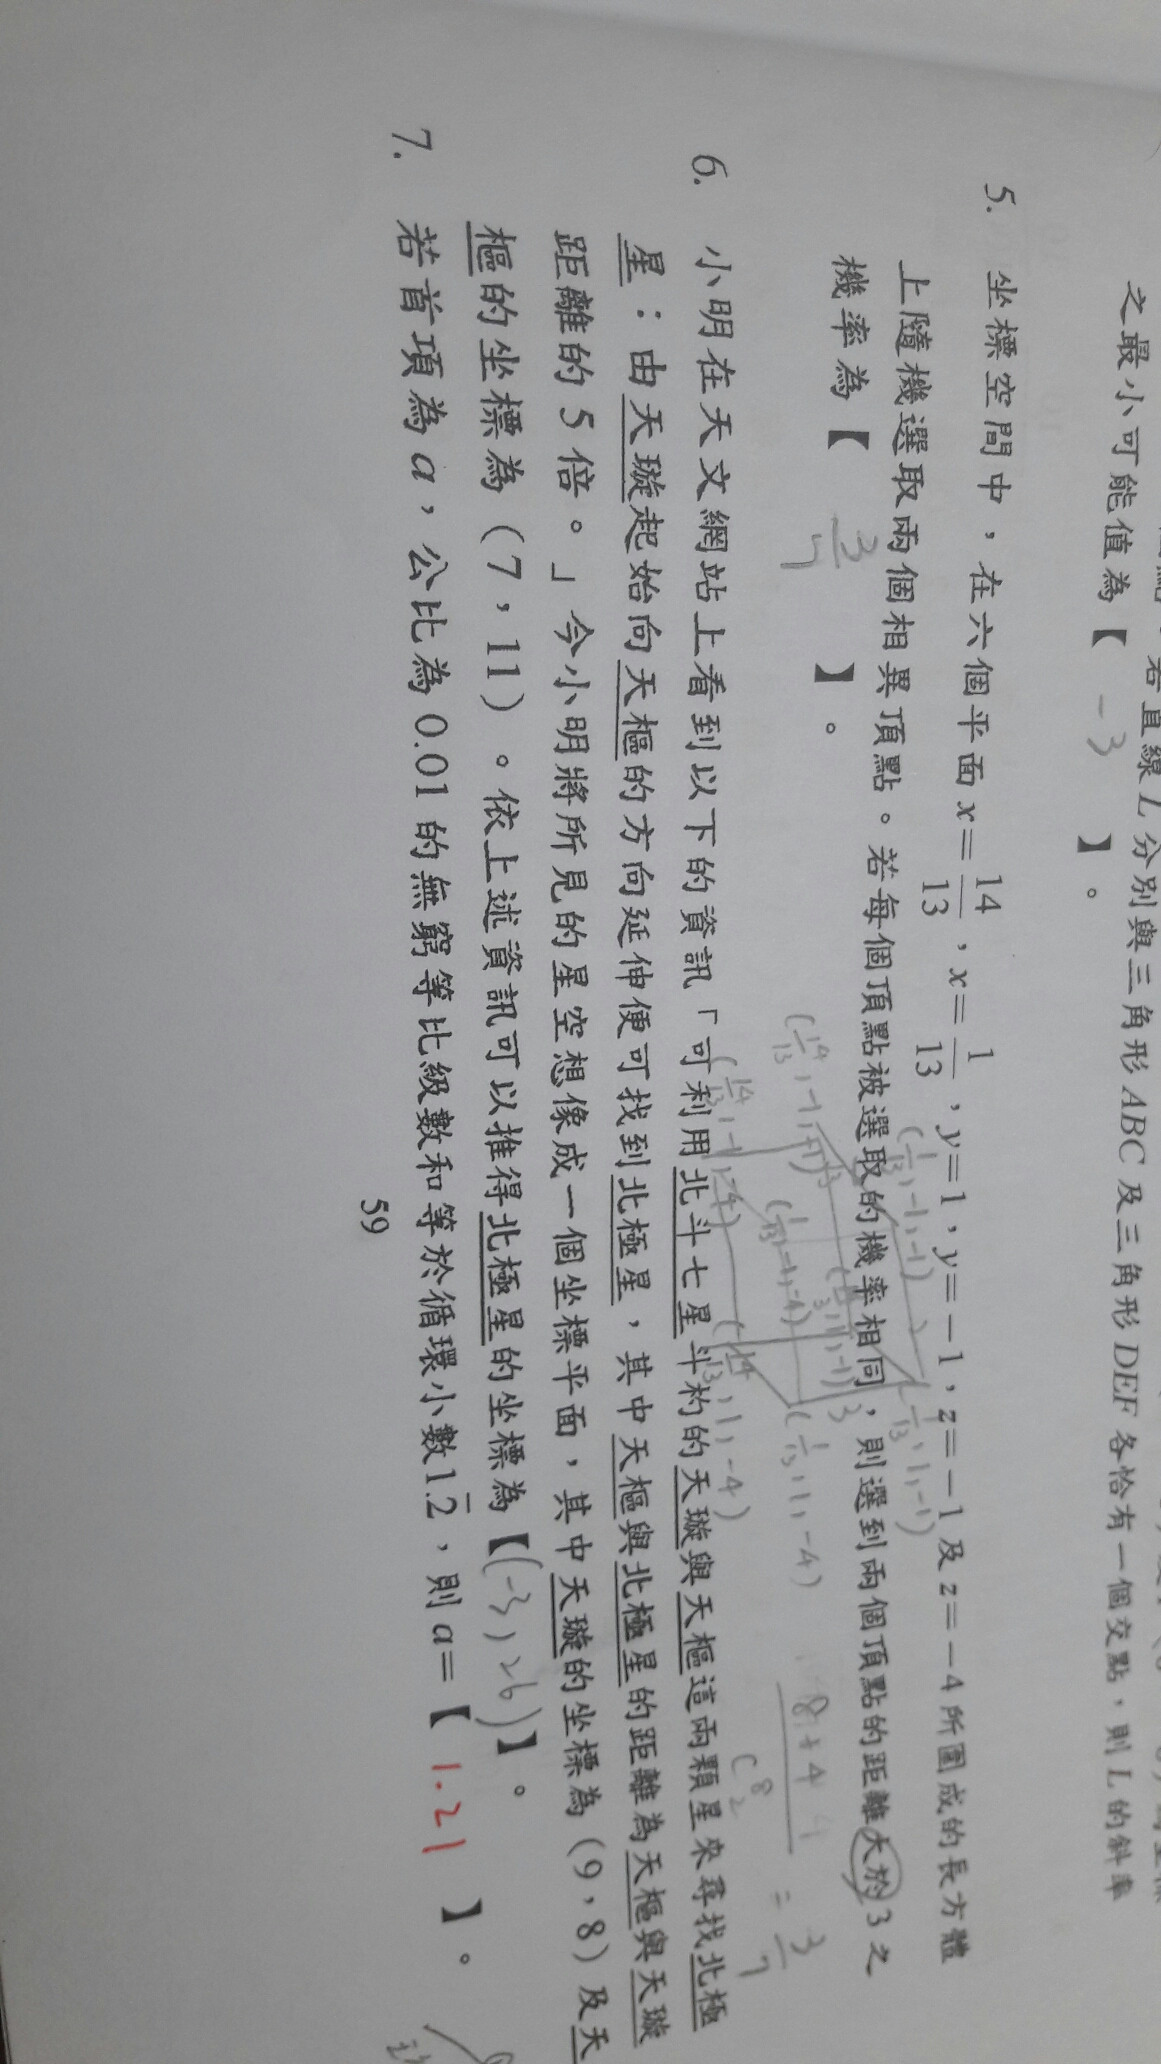 若直線 L 分別與三角形 ABC 及三角形 DEF 各恰有一個交點，則 L 的斜率
之最小可能值為【 -3 】。
5. 坐標空間中，在六個平面 x=14/13，x=1/13，y=1，y=-1，z=-1及 z=-4所圍成的長方體
上隨機選取兩個相異頂點。若每個頂點被選取的機率相同，則選到兩個頂點的距離大於3之
機率為【 3/7 】。
(1/13,-1,-1)
(1/13,1,-1)
(14/13,-1,-1)
(1/13,-1,-4)
(1/13,1,-4)
(14/13,1,-4)
8+4+4
C 8 2
= 3/7
6. 小明在天文網站上看到以下的資訊「可利用北斗七星斗杓的天璇與天樞這兩顆星來尋找北極
星：由天璇起始向天樞的方向延伸便可找到北極星，其中天樞與北極星的距離為天樞與天璇
距離的5倍。」今小明將所見的星空想像成一個坐標平面，其中天璇的坐標為（9，8）及天
樞的坐標為（7，11）。依上述資訊可以推得北極星的坐標為【(-3,26)】。
7. 若首項為 a，公比為 0.01 的無窮等比級數和等於循環小數1.2̅，則 a=【 1.21 】。
59